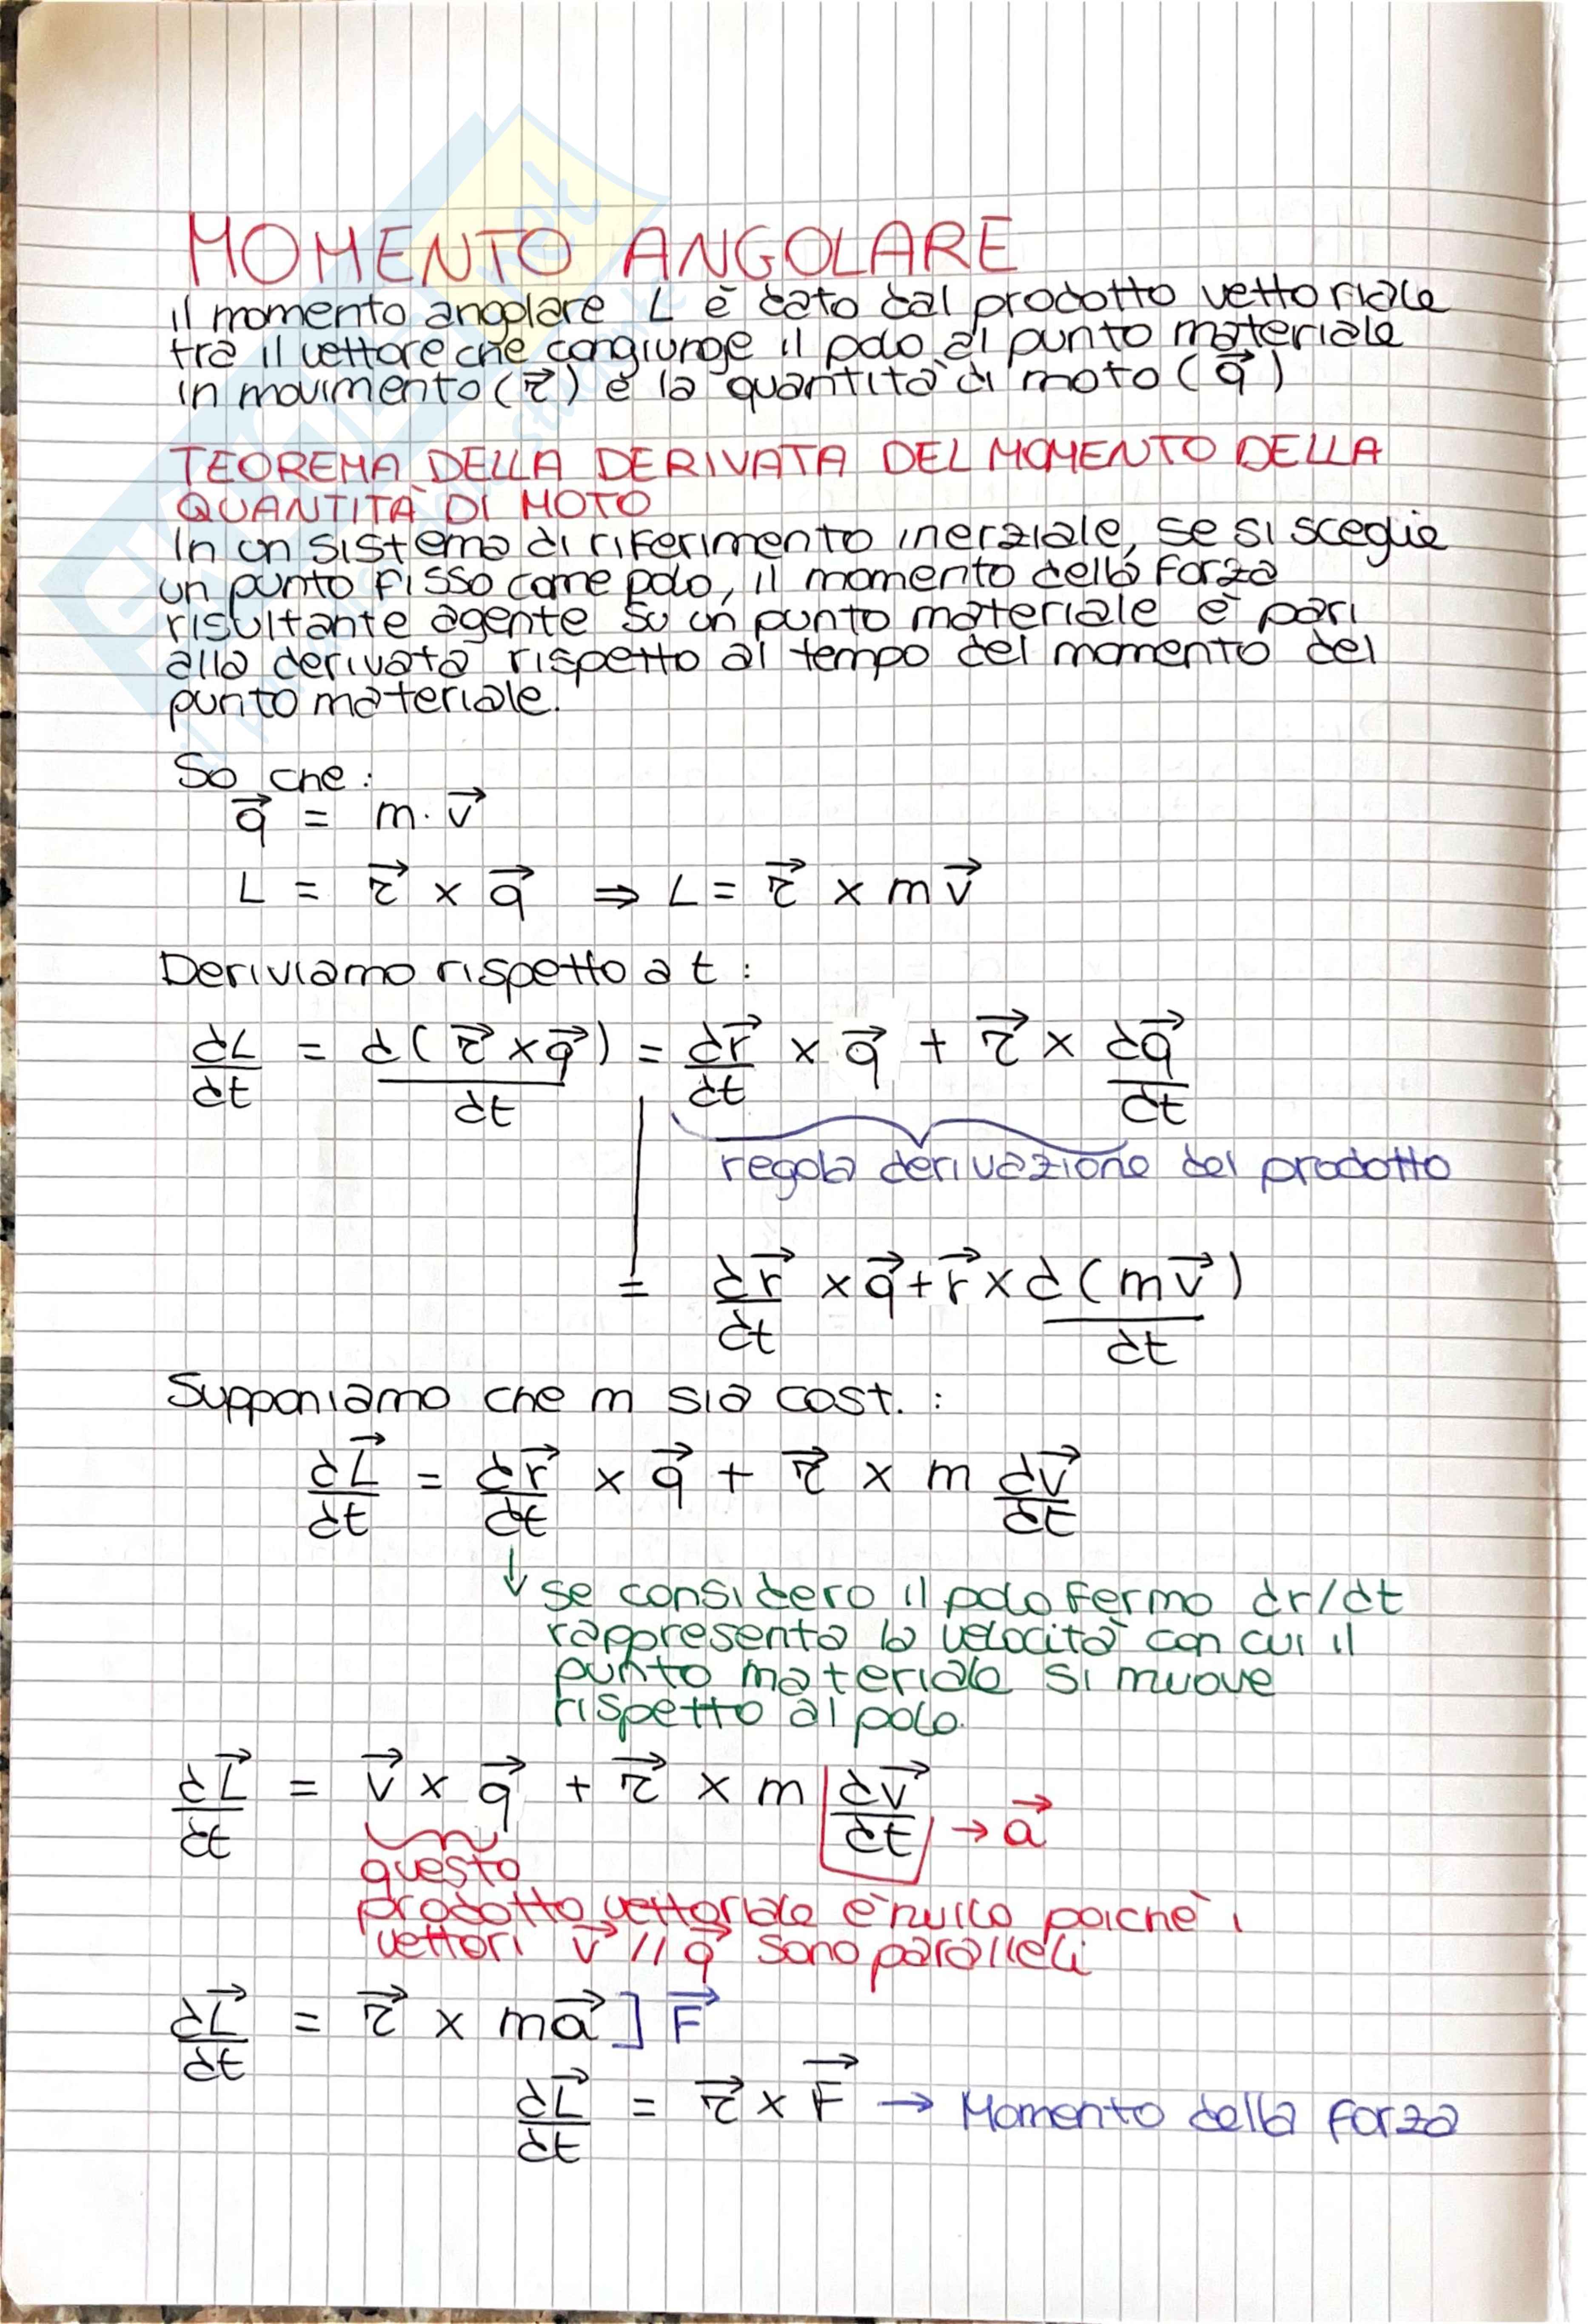 MOMENTO ANGOLARE
il momento angolare L è dato dal prodotto vettoriale
tra il vettore che congiunge il polo al punto materiale
in movimento (r⃗) e la quantità di moto (q⃗)
TEOREMA DELLA DERIVATA DEL MOMENTO DELLA
QUANTITÀ DI MOTO
In un sistema di riferimento inerziale, se si sceglie
un punto fisso come polo, il momento della forza
risultante agente su un punto materiale è pari
alla derivata rispetto al tempo del momento del
punto materiale.
So che:
q⃗ = m · v⃗
L = r⃗ × q⃗ ⇒ L = r⃗ × m v⃗
Deriviamo rispetto a t :
dL/dt = d(r⃗ × q⃗)/dt = dr⃗/dt × q⃗ + r⃗ × dq⃗/dt
regola derivazione del prodotto
= dr⃗/dt × q⃗ + r⃗ × d(m v⃗)/dt
Supponiamo che m sia cost. :
dL⃗/dt = dr⃗/dt × q⃗ + r⃗ × m dv⃗/dt
↓ se considero il polo fermo dr/dt
rappresenta la velocità con cui il
punto materiale si muove
rispetto al polo.
dL⃗/dt = v⃗ × q⃗ + r⃗ × m dv⃗/dt → a⃗
questo
prodotto vettoriale è nullo poichè i
vettori v⃗ // q⃗ sono paralleli
dL⃗/dt = r⃗ × ma⃗ ] F⃗
dL⃗/dt = r⃗ × F⃗ → Momento della forza